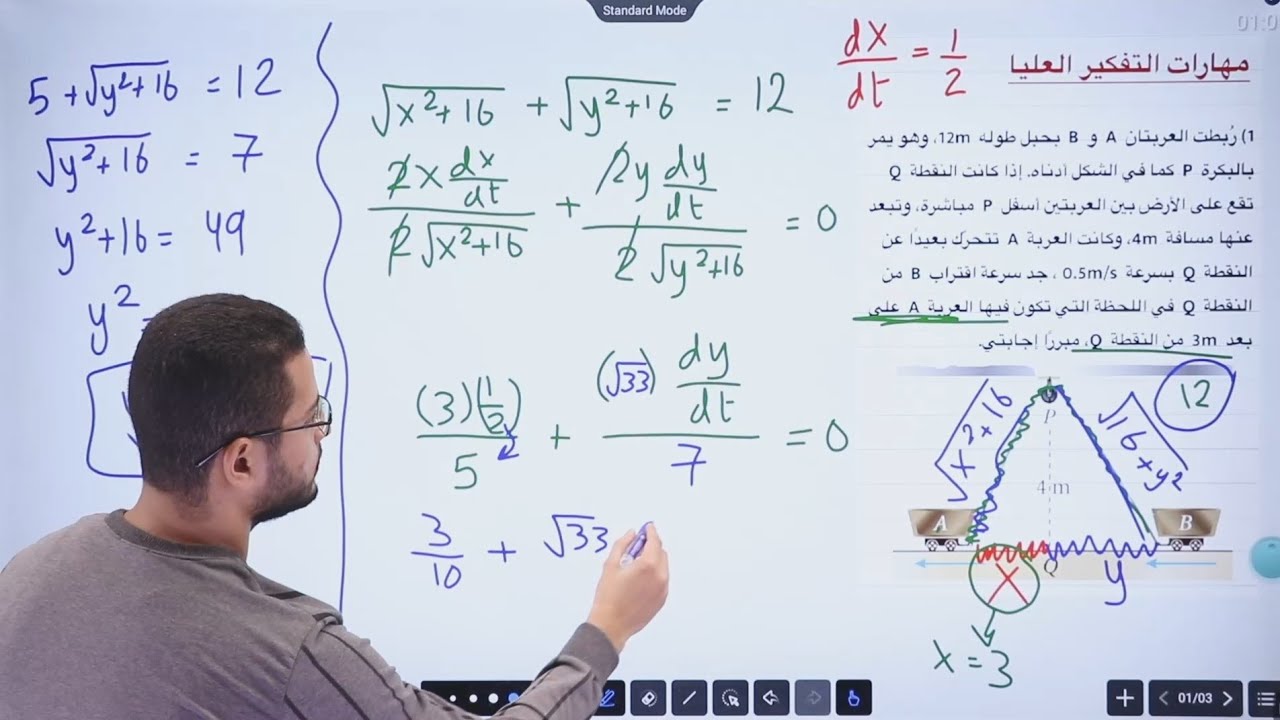 Standard Mode
01:0
5 + √(y² + 16) = 12
√(y² + 16) = 7
y² + 16 = 49
y² =
√(x² + 16) + √(y² + 16) = 12
2x dx/dt / 2√(x² + 16) + 2y dy/dt / 2√(y² + 16) = 0
(3)(1/2) / 5 + (√33) dy/dt / 7 = 0
3/10 + √33
dx/dt = 1/2
مهارات التفكير العليا
1) رُبطت العربتان A و B بحبل طوله 12m، وهو يمر
بالبكرة P كما في الشكل أدناه. إذا كانت النقطة Q
تقع على الأرض بين العربتين أسفل P مباشرة، وتبعد
عنها مسافة 4m، وكانت العربة A تتحرك بعيدًا عن
النقطة Q بسرعة 0.5m/s ، جد سرعة اقتراب B من
النقطة Q في اللحظة التي تكون فيها العربة A على
بعد 3m من النقطة Q، مبررًا إجابتي.
12
P
√(x² + 16)
√(16 + y²)
4 m
A
B
Q
x
y
x = 3
01/03